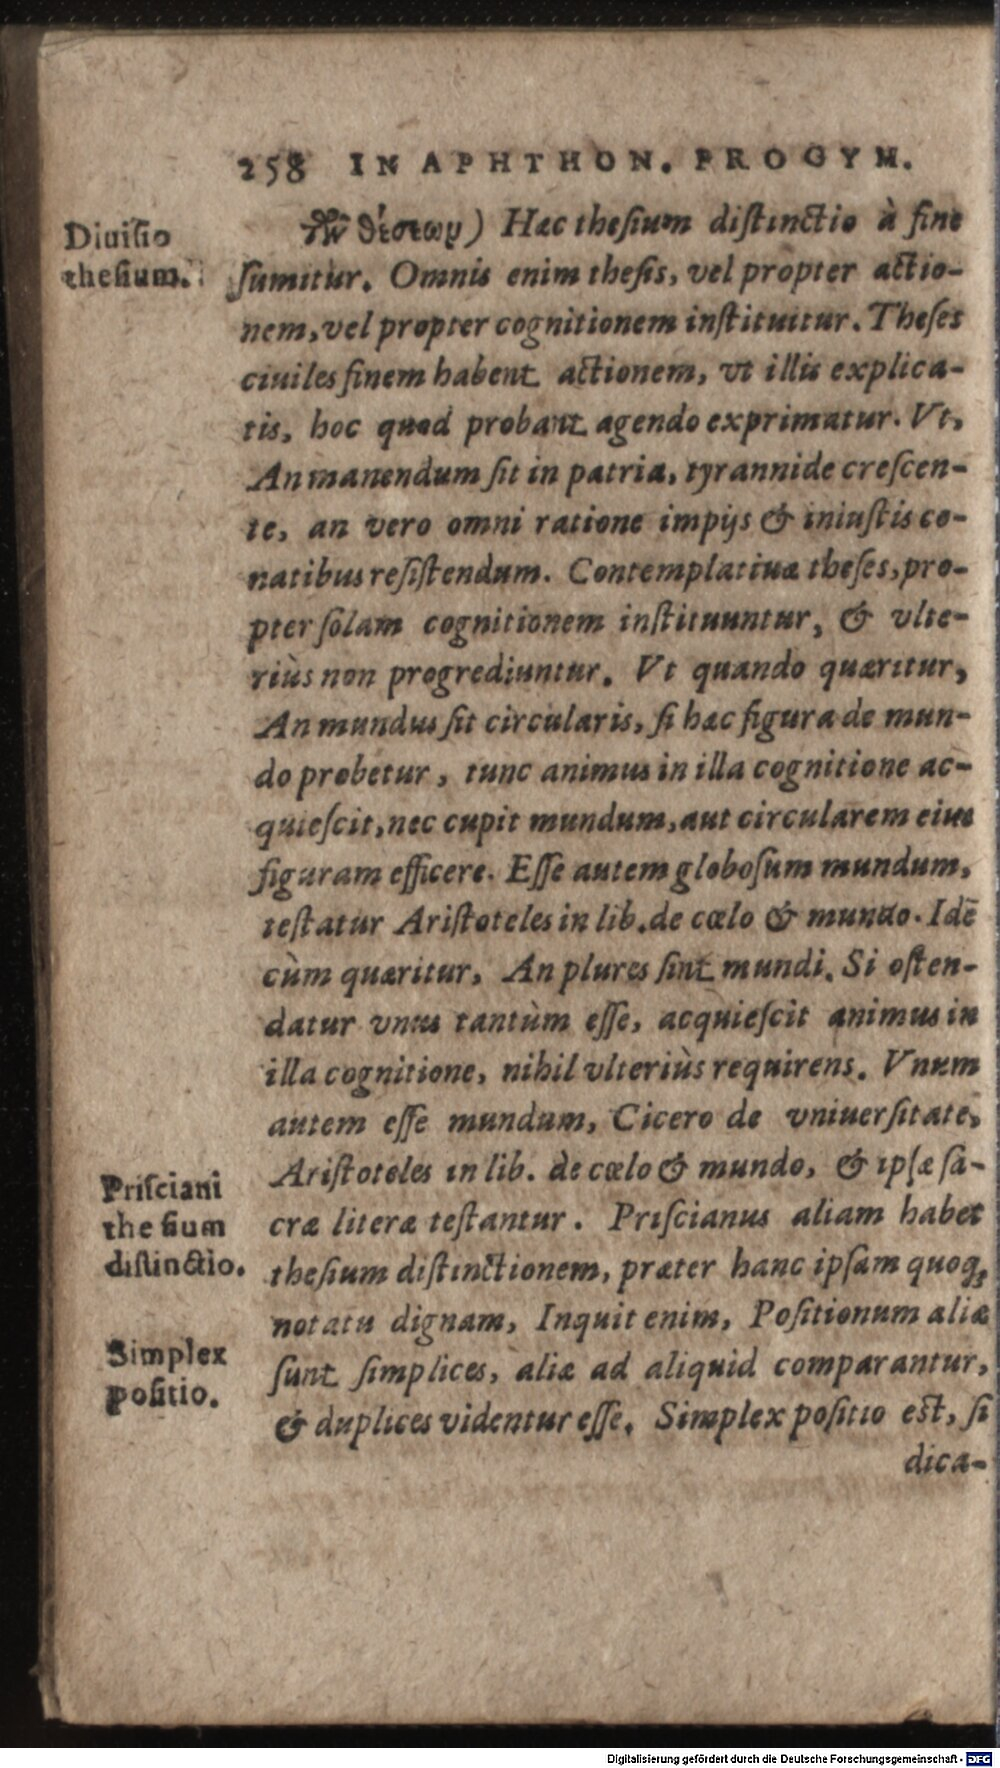 258 IN APHTHON. PROGYM.
Diuisio
thesium.
τῶν θέσεων) Hæc thesium distinctio à fine
sumitur. Omnis enim thesis, vel propter actio-
nem, vel propter cognitionem instituitur. Theses
ciuiles finem habent actionem, vt illis explica-
tis, hoc quod probant agendo exprimatur. Vt,
An manendum sit in patria, tyrannide crescen-
te, an vero omni ratione impijs & iniustis co-
natibus resistendum. Contemplatiuæ theses, pro-
pter solam cognitionem instituuntur, & vlte-
riùs non progrediuntur. Vt quando quæritur,
An mundus sit circularis, si hæc figura de mun-
do probetur, tunc animus in illa cognitione ac-
quiescit, nec cupit mundum, aut circularem eius
figuram efficere. Esse autem globosum mundum,
testatur Aristoteles in lib. de cœlo & mundo. Idē
cùm quæritur, An plures sint mundi. Si osten-
datur vnus tantùm esse, acquiescit animus in
illa cognitione, nihil vlteriùs requirens. Vnum
autem esse mundum, Cicero de vniuersitate,
Aristoteles in lib. de cœlo & mundo, & ipsæ sa-
Prisciani
thesium
distinctio.
cræ literæ testantur. Priscianus aliam habet
thesium distinctionem, præter hanc ipsam quoq;
notatu dignam, Inquit enim, Positionum aliæ
Simplex
positio.
sunt simplices, aliæ ad aliquid comparantur,
& duplices videntur esse. Simplex positio est, si
dica-
Digitalisierung gefördert durch die Deutsche Forschungsgemeinschaft - DFG